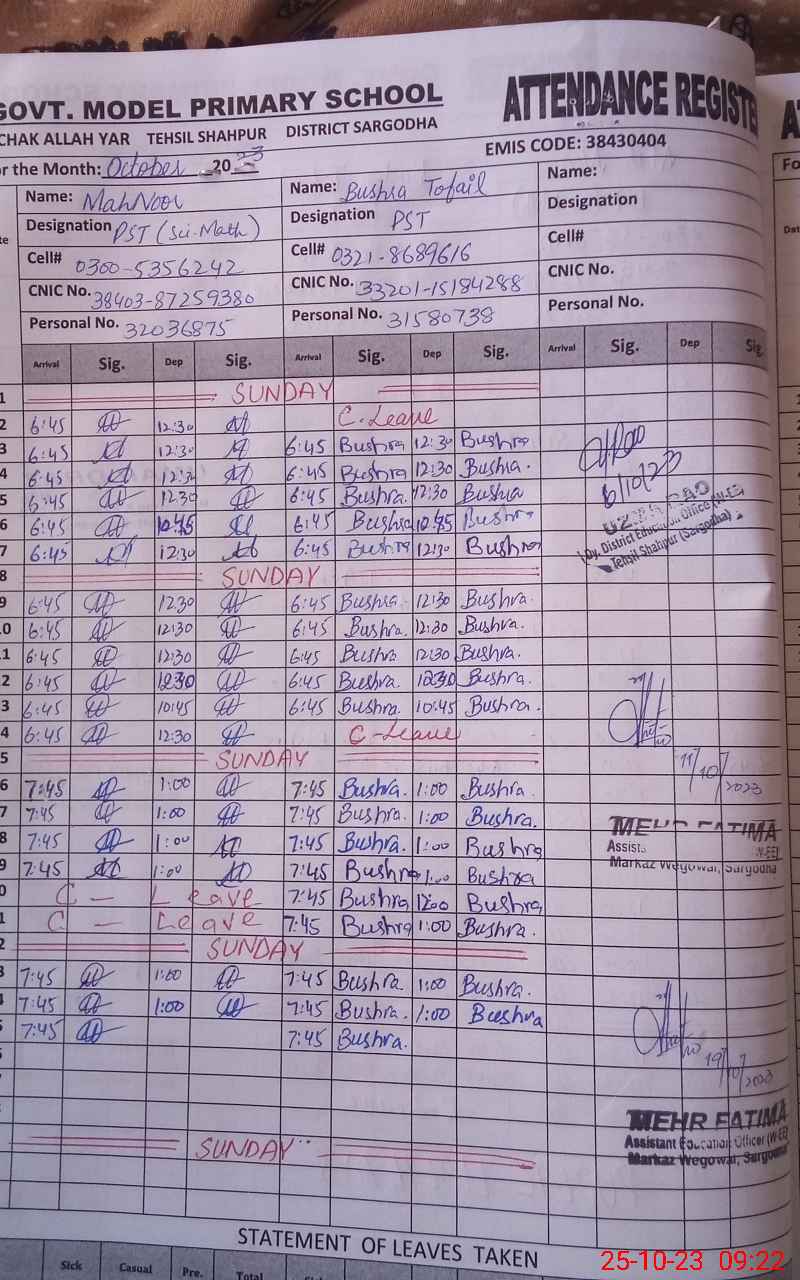 GOVT. MODEL PRIMARY SCHOOL ATTENDANCE REGISTE
CHAK ALLAH YAR TEHSIL SHAHPUR DISTRICT SARGODHA EMIS CODE: 38430404
or the Month: October 2023 Fo
Name: MahNoor Name: Bushra Tofail Name:
Designation PST (Sci-Math) Designation PST Designation
Cell# 0300-5356242 Cell# 0321-8689616 Cell#
CNIC No. 38403-87259380 CNIC No. 33201-15184288 CNIC No.
Personal No. 32036875 Personal No. 31580738 Personal No.
Arrival Sig. Dep Sig. Arrival Sig. Dep Sig. Arrival Sig. Dep Sig
1 SUNDAY
2 6:45 12:30 C. Leave
3 6:45 12:30 6:45 Bushra 12:30 Bushra
4 6:45 12:30 6:45 Bushra 12:30 Bushra.
5 6:45 12:30 6:45 Bushra. 12:30 Bushra
6 6:45 10:45 6:45 Bushra 10:45 Bushra
7 6:45 12:30 6:45 Bushra 12:30 Bushra
6/10/23
Dy. District Education Office (W-EE)
Tehsil Shahpur (Sargodha)
8 SUNDAY
9 6:45 12:30 6:45 Bushra. 12:30 Bushra.
0 6:45 12:30 6:45 Bushra. 12:30 Bushra.
11 6:45 12:30 6:45 Bushra 12:30 Bushra.
2 6:45 12:30 6:45 Bushra. 12:30 Bushra.
3 6:45 10:45 6:45 Bushra. 10:45 Bushra.
4 6:45 12:30 C-Leave
5 SUNDAY
11/10/2023
6 7:45 1:00 7:45 Bushra. 1:00 Bushra.
7 7:45 1:00 7:45 Bushra. 1:00 Bushra.
8 7:45 1:00 7:45 Bushra. 1:00 Bushra
9 7:45 1:00 7:45 Bushra 1:00 Bushra
MEHR FATIMA
Assis W-EE
Markaz Wegowal, Sargodha
0 C - Leave 7:45 Bushra 1:00 Bushra
1 C - Leave 7:45 Bushra 1:00 Bushra.
2 SUNDAY
3 7:45 1:00 7:45 Bushra. 1:00 Bushra.
4 7:45 1:00 7:45 Bushra. 1:00 Bushra
5 7:45 7:45 Bushra.
19/10/2023
MEHR FATIMA
Assistant Education Officer (W-EE
Markaz Wegowal, Sargodha
SUNDAY
STATEMENT OF LEAVES TAKEN
Sick Casual Pre. Total
25-10-23 09:22